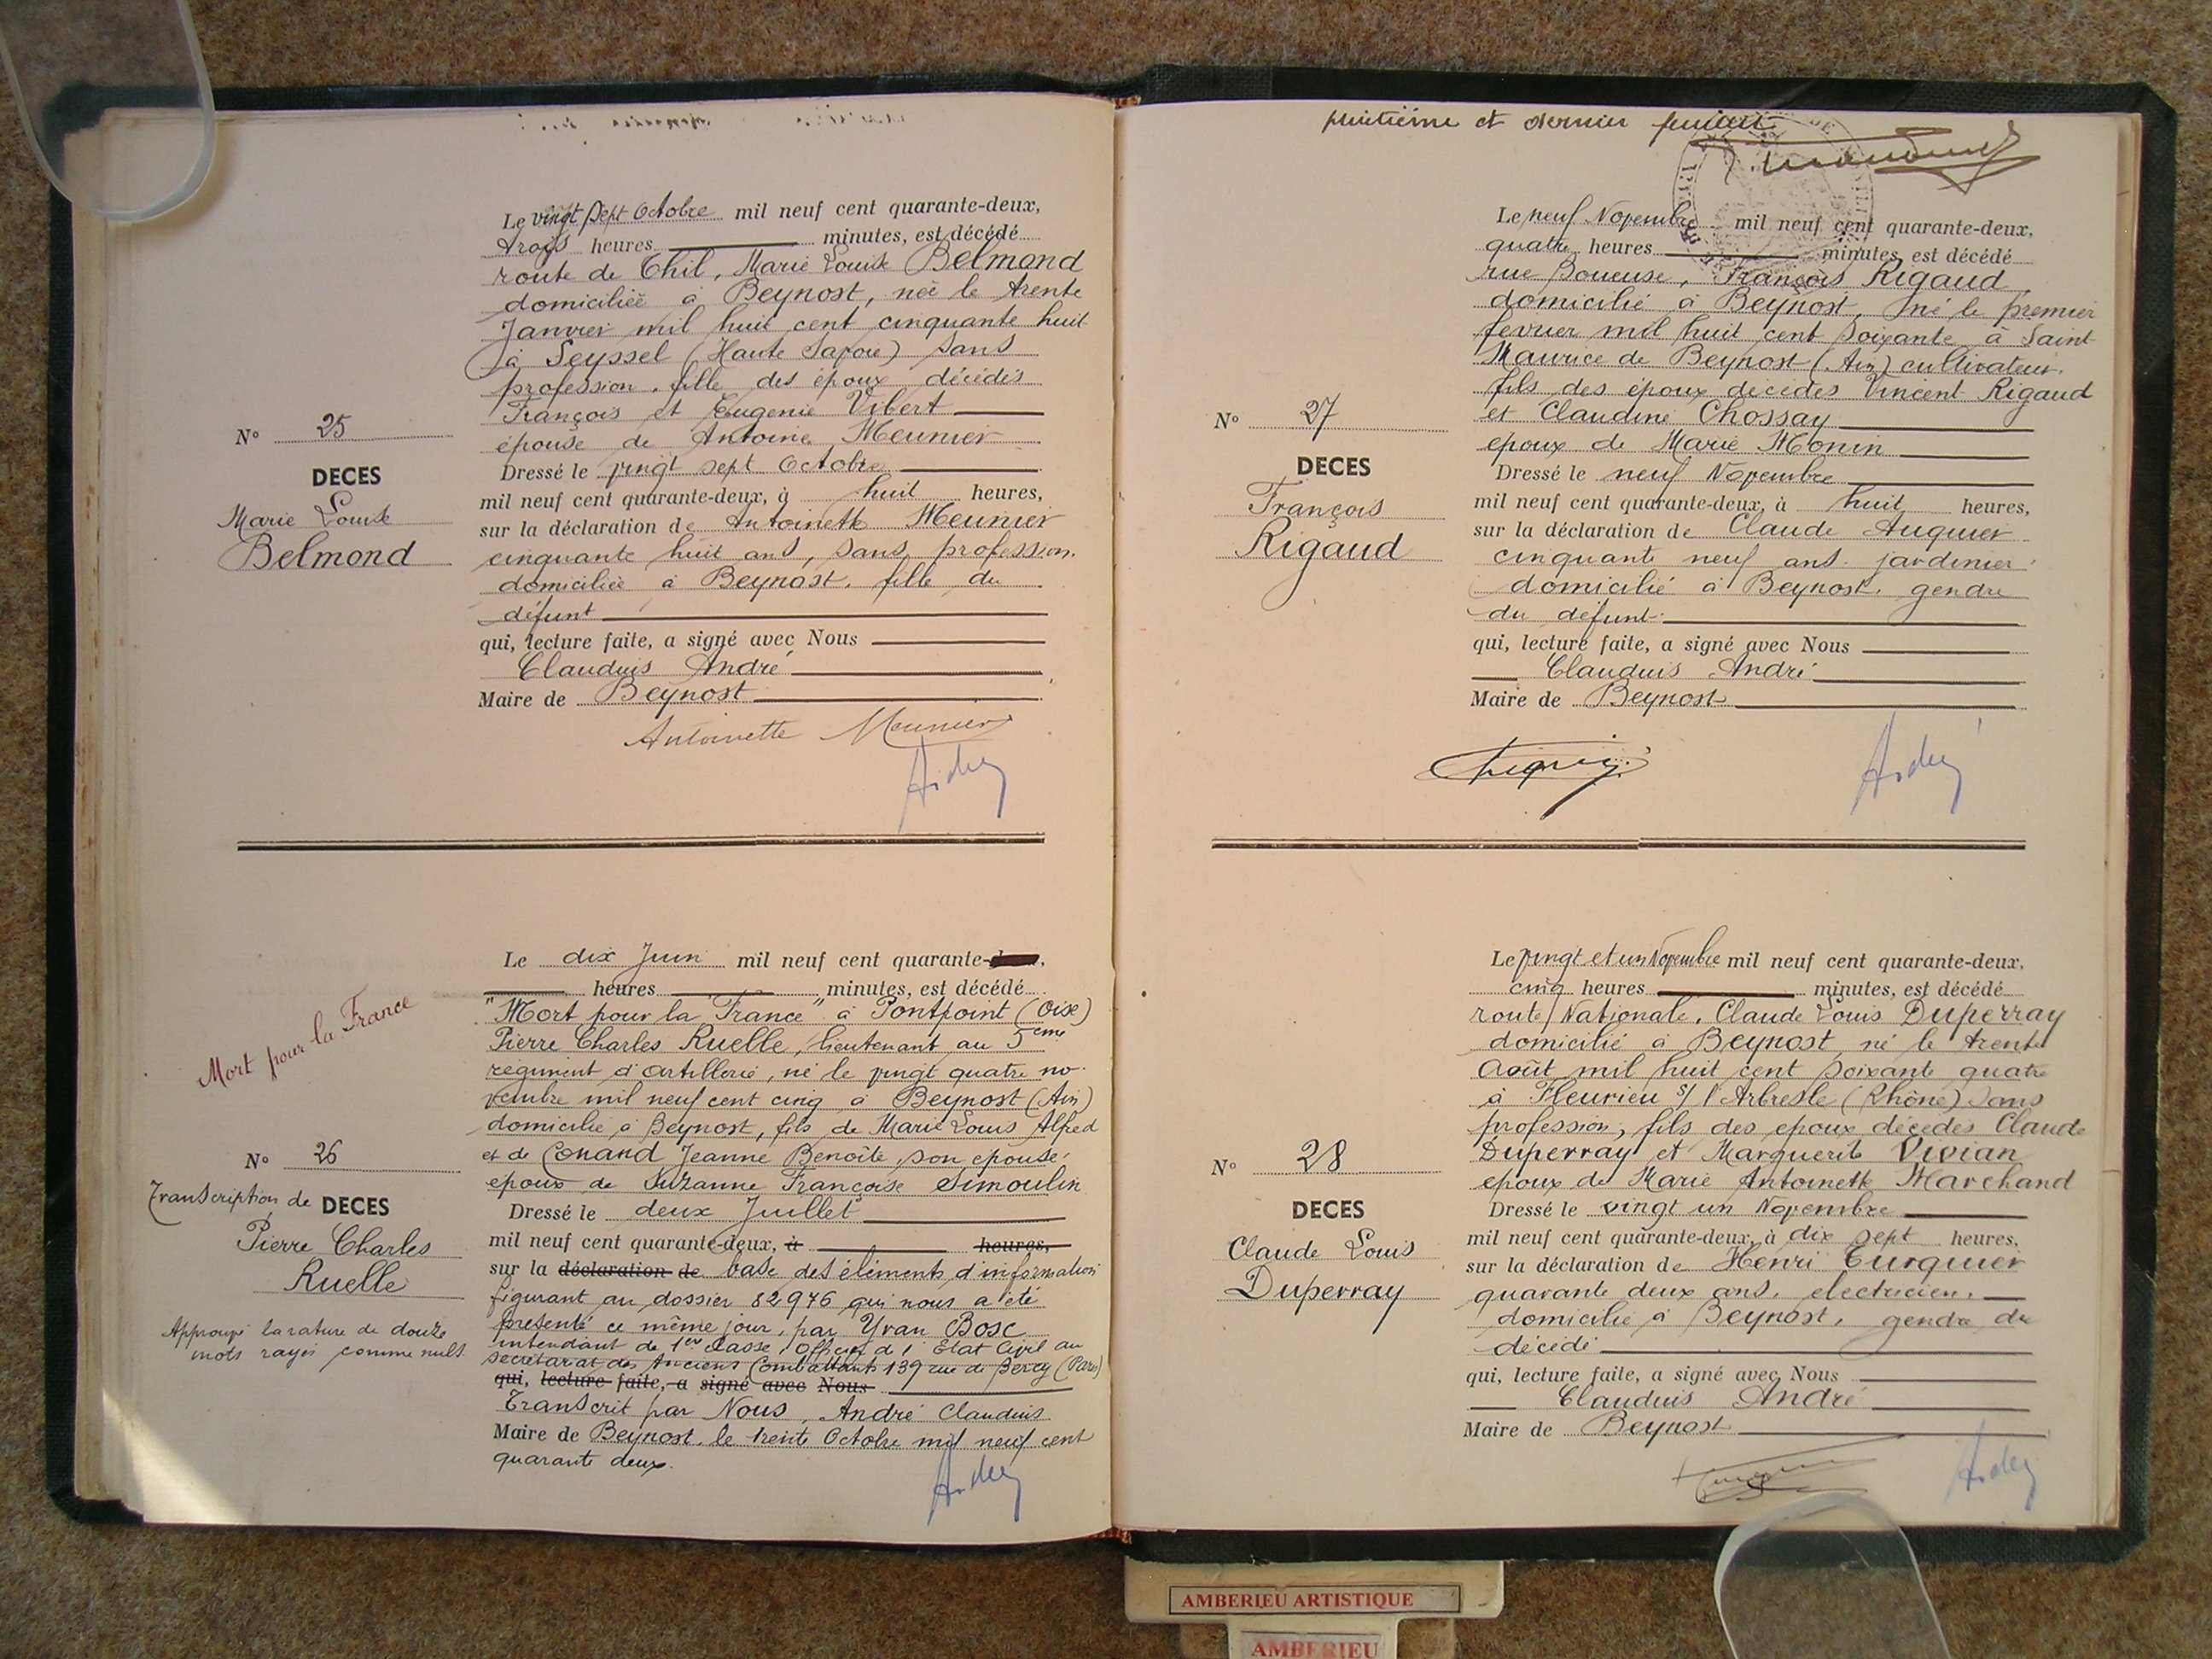 Le vingt sept Octobre mil neuf cent quarante-deux,
trois heures minutes, est décédé
route de Thil, Marie Louise Belmond
domiciliée à Beynost, née le trente
Janvier mil huit cent cinquante huit
à Seyssel (Haute Savoie) sans
profession, fille des époux décédés
François et Eugenie Vibert
épouse de Antoine Meunier
Dressé le vingt sept Octobre
mil neuf cent quarante-deux, à huit heures,
sur la déclaration de Antoinette Meunier
cinquante huit ans, sans profession,
domiciliée à Beynost, fille du
défunt
qui, lecture faite, a signé avec Nous
Claudius André
Maire de Beynost
Antoinette Meunier
André
N° 25
DECES
Marie Louise
Belmond
Le dix Juin mil neuf cent quarante-
heures minutes, est décédé
"Mort pour la France" à Pontpoint (Oise)
Pierre Charles Ruelle, lieutenant au 5eme
régiment d'artillerie, né le vingt quatre no-
vembre mil neuf cent cinq à Beynost (Ain)
domicilié à Beynost, fils de Marie Louis Alfred
et de Conand Jeanne Benoite, son epouse,
epoux de Suzanne Françoise Simoulin
Dressé le deux Juillet
mil neuf cent quarante-deux, à heures,
sur la déclaration de base des éléments d'information
figurant au dossier 82976 qui nous a été
présenté ce même jour, par Yvan Bosc
intendant de 1er classe, Officier de l'Etat Civil au
secrétariat des Anciens Combattants 139 rue de Bercy (Paris)
qui, lecture faite, a signé avec Nous
Transcrit par Nous, André Claudius
Maire de Beynost, le trente Octobre mil neuf cent
quarante deux.
André
Mort pour la France
N° 26
Transcription de DECES
Pierre Charles
Ruelle
Approuvé la rature de douze
mots rayés comme nuls.
huitième et dernier feuillet
Le neuf Novembre mil neuf cent quarante-deux,
quatre heures minutes, est décédé
rue Boueuse, François Rigaud
domicilié à Beynost, né le premier
fevrier mil huit cent soixante à Saint
Maurice de Beynost (Ain) cultivateur,
fils des époux décédés Vincent Rigaud
et Claudine Chossay
epoux de Marie Monin
Dressé le neuf Novembre
mil neuf cent quarante-deux, à huit heures,
sur la déclaration de Claude Auquier
cinquante neuf ans jardinier
domicilié à Beynost, gendre
du défunt
qui, lecture faite, a signé avec Nous
Claudius André
Maire de Beynost
André
N° 27
DECES
François
Rigaud
Le vingt et un Novembre mil neuf cent quarante-deux,
cinq heures minutes, est décédé
route Nationale, Claude Louis Duperray
domicilié à Beynost, né le trente
Août mil huit cent soixante quatre
à Fleurieu s/ l'Arbresle (Rhône) sans
profession, fils des epoux décédés Claude
Duperray et Marguerite Vivian
epoux de Marie Antoinette Marchand
Dressé le vingt un Novembre
mil neuf cent quarante-deux, à dix sept heures,
sur la déclaration de Henri Turquier
quarante deux ans, electricien,
domicilié à Beynost, gendre du
décédé
qui, lecture faite, a signé avec Nous
Claudius André
Maire de Beynost
André
N° 28
DECES
Claude Louis
Duperray
AMBERIEU ARTISTIQUE
AMBERIEU